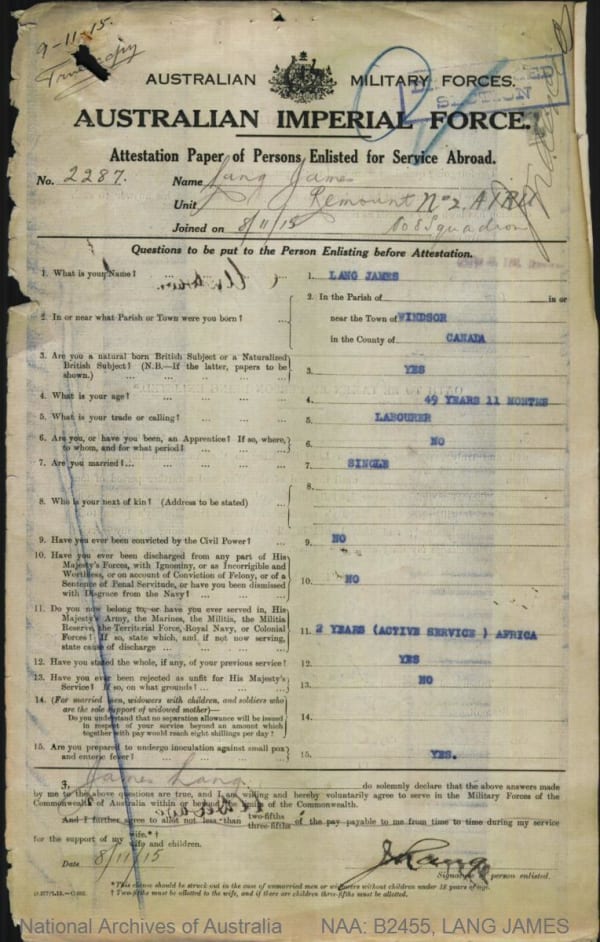 9-11-15.
True copy
AUSTRALIAN MILITARY FORCES.
SECTION
AUSTRALIAN IMPERIAL FORCE.
Attestation Paper of Persons Enlisted for Service Abroad.
No. 2287. Name Lang James
Unit Remount No 2. A.1RU
Joined on 8/11/15 Squadron
Questions to be put to the Person Enlisting before Attestation.
1. What is your Name? ... ... ... 1. LANG JAMES
2. In or near what Parish or Town were you born? ... 2. In the Parish of in or
near the Town of WINDSOR
in the County of CANADA
3. Are you a natural born British Subject or a Naturalized
British Subject? (N.B.—If the latter, papers to be
shown.) ... ... ... 3. YES
4. What is your age? ... ... ... 4. 49 YEARS 11 MONTHS
5. What is your trade or calling? ... ... ... 5. LABOURER
6. Are you, or have you been, an Apprentice? If so, where,
to whom, and for what period? ... ... 6. NO
7. Are you married? ... ... ... ... 7. SINGLE
8. Who is your next of kin? (Address to be stated) ... 8.
9. Have you ever been convicted by the Civil Power? ... 9. NO
10. Have you ever been discharged from any part of His
Majesty's Forces, with Ignominy, or as Incorrigible and
Worthless, or on account of Conviction of Felony, or of a
Sentence of Penal Servitude, or have you been dismissed
with Disgrace from the Navy? ... ... 10. NO
11. Do you now belong to, or have you ever served in, His
Majesty's Army, the Marines, the Militia, the Militia
Reserve, the Territorial Force, Royal Navy, or Colonial
Forces? If so, state which, and if not now serving,
state cause of discharge ... ... ... 11. 2 YEARS (ACTIVE SERVICE ) AFRICA
12. Have you stated the whole, if any, of your previous service? 12. YES
13. Have you ever been rejected as unfit for His Majesty's
Service? If so, on what grounds? ... ... 13. NO
14. (For married men, widowers with children, and soldiers who
are the sole support of widowed mother)—
Do you understand that no separation allowance will be issued
in respect of your service beyond an amount which
together with pay would reach eight shillings per day? 14.
15. Are you prepared to undergo inoculation against small pox
and enteric fever? ... ... ... 15. YES.
I, James Lang do solemnly declare that the above answers made
by me to the above questions are true, and I am willing and hereby voluntarily agree to serve in the Military Forces of the
Commonwealth of Australia within or beyond the limits of the Commonwealth.
And I further agree to allot not less than two-fifths three-fifths of the pay payable to me from time to time during my service
for the support of my wife.*† wife and children.
Date 8/11/15 J Lang
Signature of person enlisted.
*This clause should be struck out in the case of unmarried men or widowers without children under 18 years of age.
† Two-fifths must be allotted to the wife, and if there are children three-fifths must be allotted.
National Archives of Australia NAA: B2455, LANG JAMES